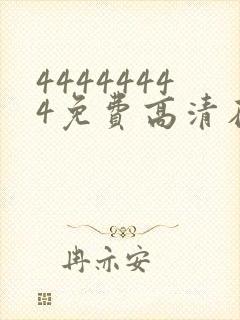 4444444
4免費高清
冉亦安